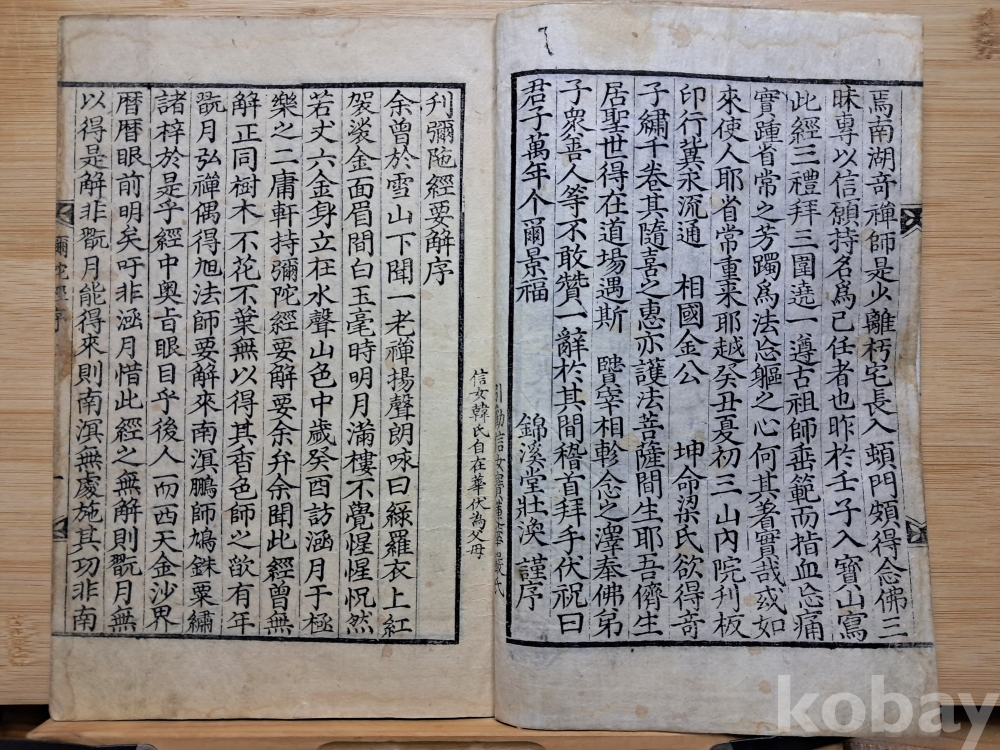 焉南湖奇禪師是少離朽宅長入頓門頗得念佛三
昧專以信願持名爲己任者也昨於壬子入寶山寫
此經三禮拜三圍遶一遵古祖師垂範而指血忘痛
實踵省常之芳躅爲法忘軀之心何其着實哉或如
來使人耶省常重來耶越癸丑夏初三山內院刋板
印行冀求流通 相國金公 坤命梁氏欲得奇
子繡千卷其隨喜之惠亦護法菩薩間生耶吾儕生
居聖世得在道場遇斯 賢宰相軫念之澤奉佛弟
子衆善人等不敢贊一辭於其間稽首拜手伏祝曰
君子萬年介爾景福 錦溪堂壯渙 謹序
信女韓氏自在華伏為父母
刋彌陁經要解序
余曾於雪山下聞一老禪揚聲朗咏曰綠羅衣上紅
袈裟金面眉間白玉毫時明月滿樓不覺惺惺怳然
若丈六金身立在水聲山色中歲癸酉訪涵月于極
樂之二庸軒持彌陀經要解要余弁余聞此經曾無
解正同樹木不花不葉無以得其香色師之歆有年
翫月弘禪偶得旭法師要解來南溟鵬師鳩銖粟繡
諸梓於是乎經中奧旨眼目乎後人而西天金沙界
曆曆眼前明矣吁非涵月惜此經之無解則翫月無
以得是解非翫月能得來則南溟無處施其功非南
彌陀經序
一
kobay